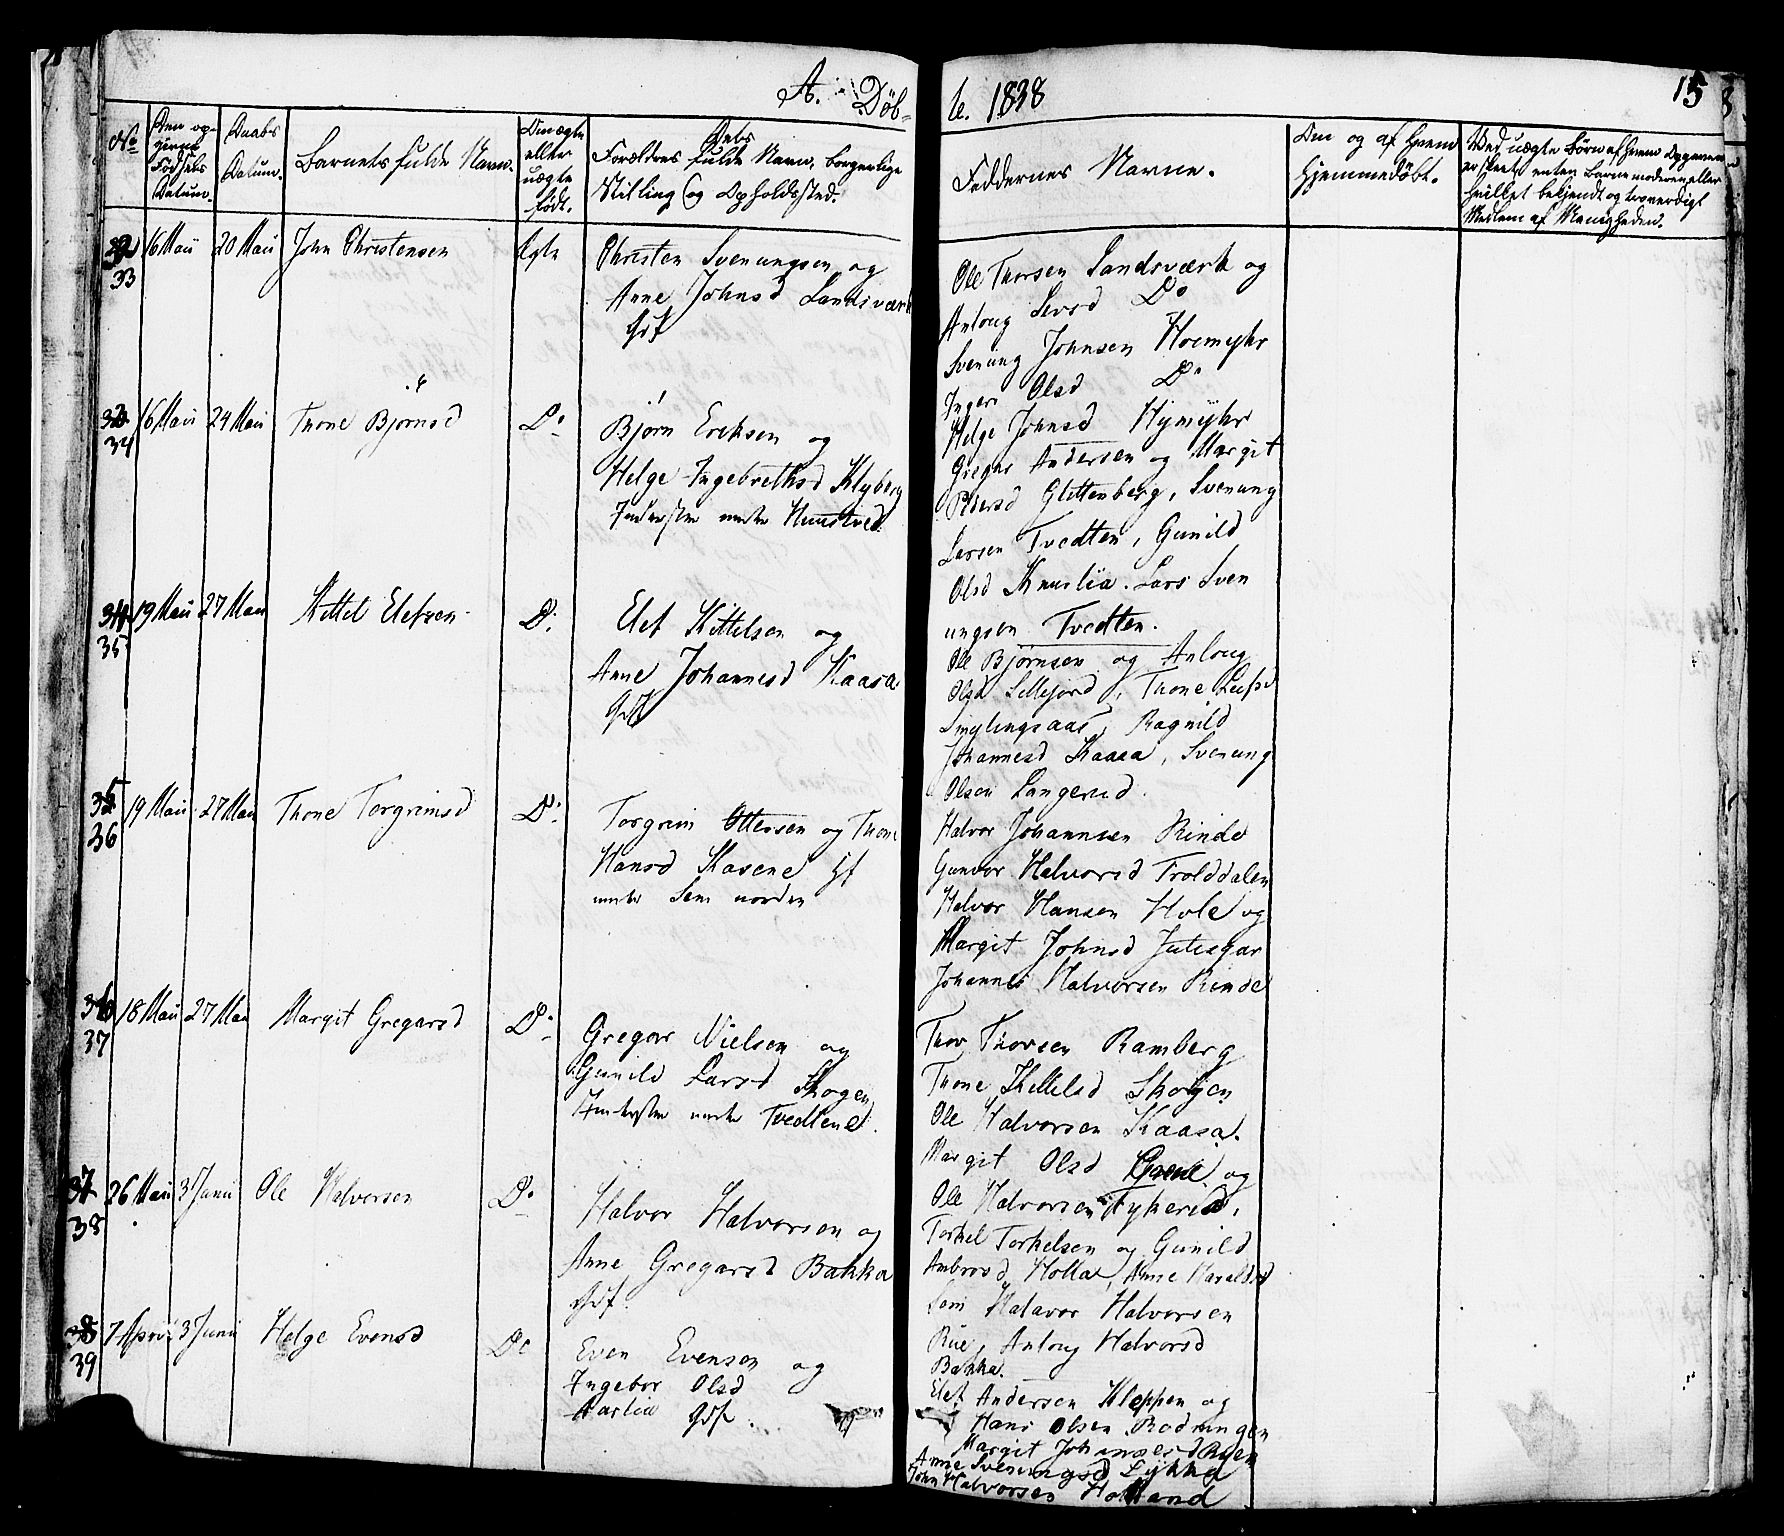 A. Döb-
te. 1838
15
No
Den op-
givne
Fødsels
Datum.
Daabs
Datum.
Barnets fulde Navn.
Om ægte
eller
uægte
født.
Forældres fulde Navn, borgerlige
Stilling og Opholdssted.
Faddernes Navne.
Om og af hvem
hjemmedöbt.
Ved uægte Börn af hvem Opgaven
er skeet, enten Barnemoderen eller
hvilket bekjendt og troværdigt
Medlem af Menigheden.
33
16 Maii
20 Maii
John Christensen
Egte
Christen Svenungsen og
Anne Johnsd Landsværk
Gdf
Ole Thorsen Landsværk og
Anloug Leosd Do
Svenung Johnsen Hoemyhr
Ingeri Olsd Do
34
16 Maii
24 Maii
Thone Bjørnsd
Do
Bjørn Eriksen og
Helge Ingebrethsd Klyberg
Inderster under Nuustved
Helge Johnsd Hymyhr
Gregar Andersen og Margit
Pedersd Glittenberg, Svenung
Larsen Tvedten, Gunild
Olsd Knuslia. Lars Sven
ungsen Tvedten.
35
19 Maii
27 Maii
Kittel Elefsen
Do
Elef Kittelsen og
Anne Johannesd Kaasa
Gdf
Ole Bjørnsen og Anloug
Olsd Lillejord, Thone Leifsd
Johannesd Kaasa, Svenung
Olsen Langerud.
36
19 Maii
27 Maii
Thone Torgrimsd
Do
Torgrim Ottersen og Thone
Hansd Kasene Hf
under Sem nordre
Halvor Johannsen Rinde
Gunvor Halvorsd Trolddalen
Halvor Hansen Hole og
Margit Johnsd
Johannes Halvorsen Rinde
37
18 Maii
27 Maii
Margit Gregarsd
Do
Gregar Nielsen og
Gunild Larsd Skogen
Inderster under Tvedtene.
Thor Thorsen Ramberg
Thone Kittilsd Skogen
Ole Halvorsen Kaasa.
38
26 Maii
3 Junii
Ole Halvorsen
Do
Halvor Halvorsen og
Anne Gregarsd Bakka
Gdf.
Margit Olsd og
Ole Halvorsen
Torkel Torkelsen og Gunild
Ambrosd Holla, Anne Haraldsd
Sem Halavor Halvorsen
Rue, Anloug Halvorsd
Bakka.
39
7 April
3 Junii
Helge Evensd
Do
Even Evensen og
Ingebor Olsd
Aaslia Gdf.
Elef Andersen Kleppen og
Hans Olsen Rodningen
Margit Johannesd Ruen
Anne Svenungsd Lykka
John Halvorsen Holland